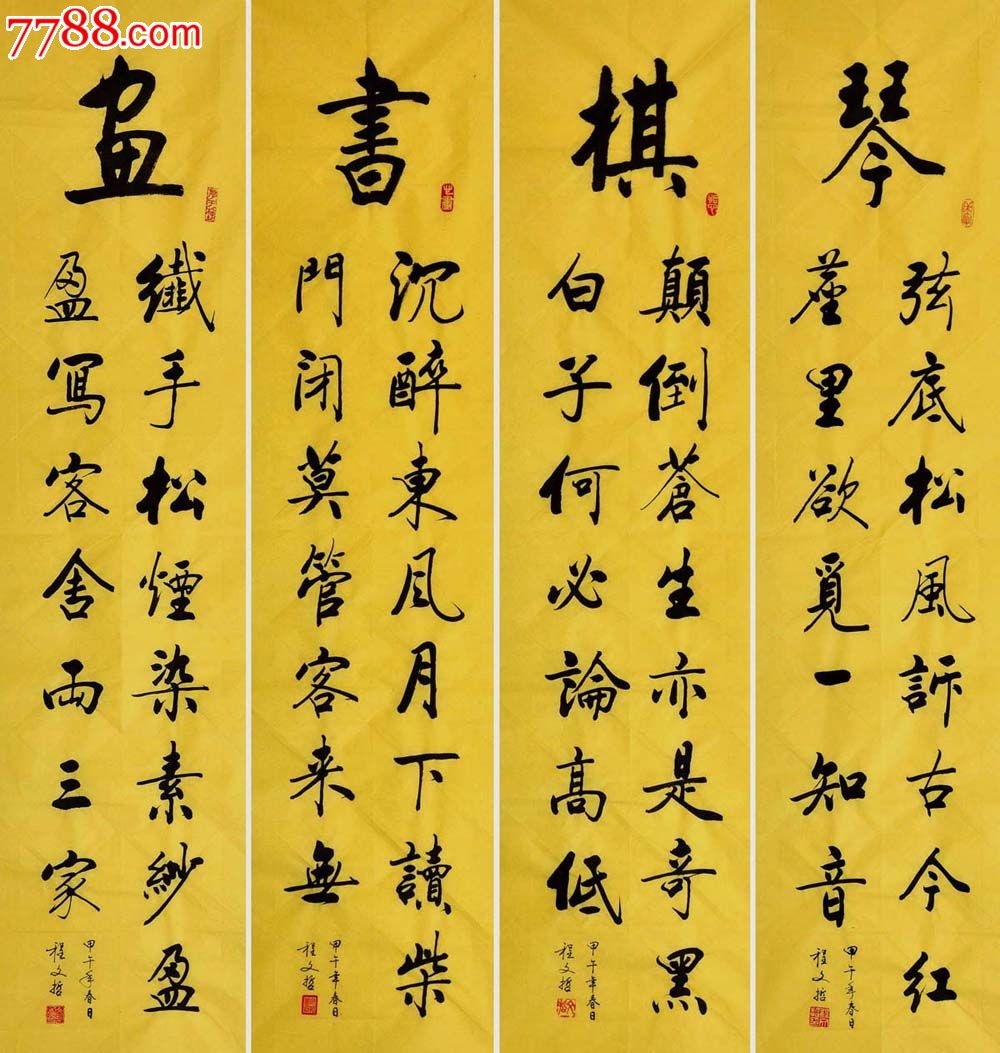 7788.com
琴
弦底松風訴古今红
塵里欲覓一知音
甲午年春日
程文哲
棋
顛倒蒼生亦是奇黑
白子何必論高低
甲午年春日
程文哲
書
沉醉東风月下讀柴
門闭莫管客来無
甲午年春日
程文哲
画
纖手松煙染素紗盈
盈寫客舍両三家
甲午年春日
程文哲